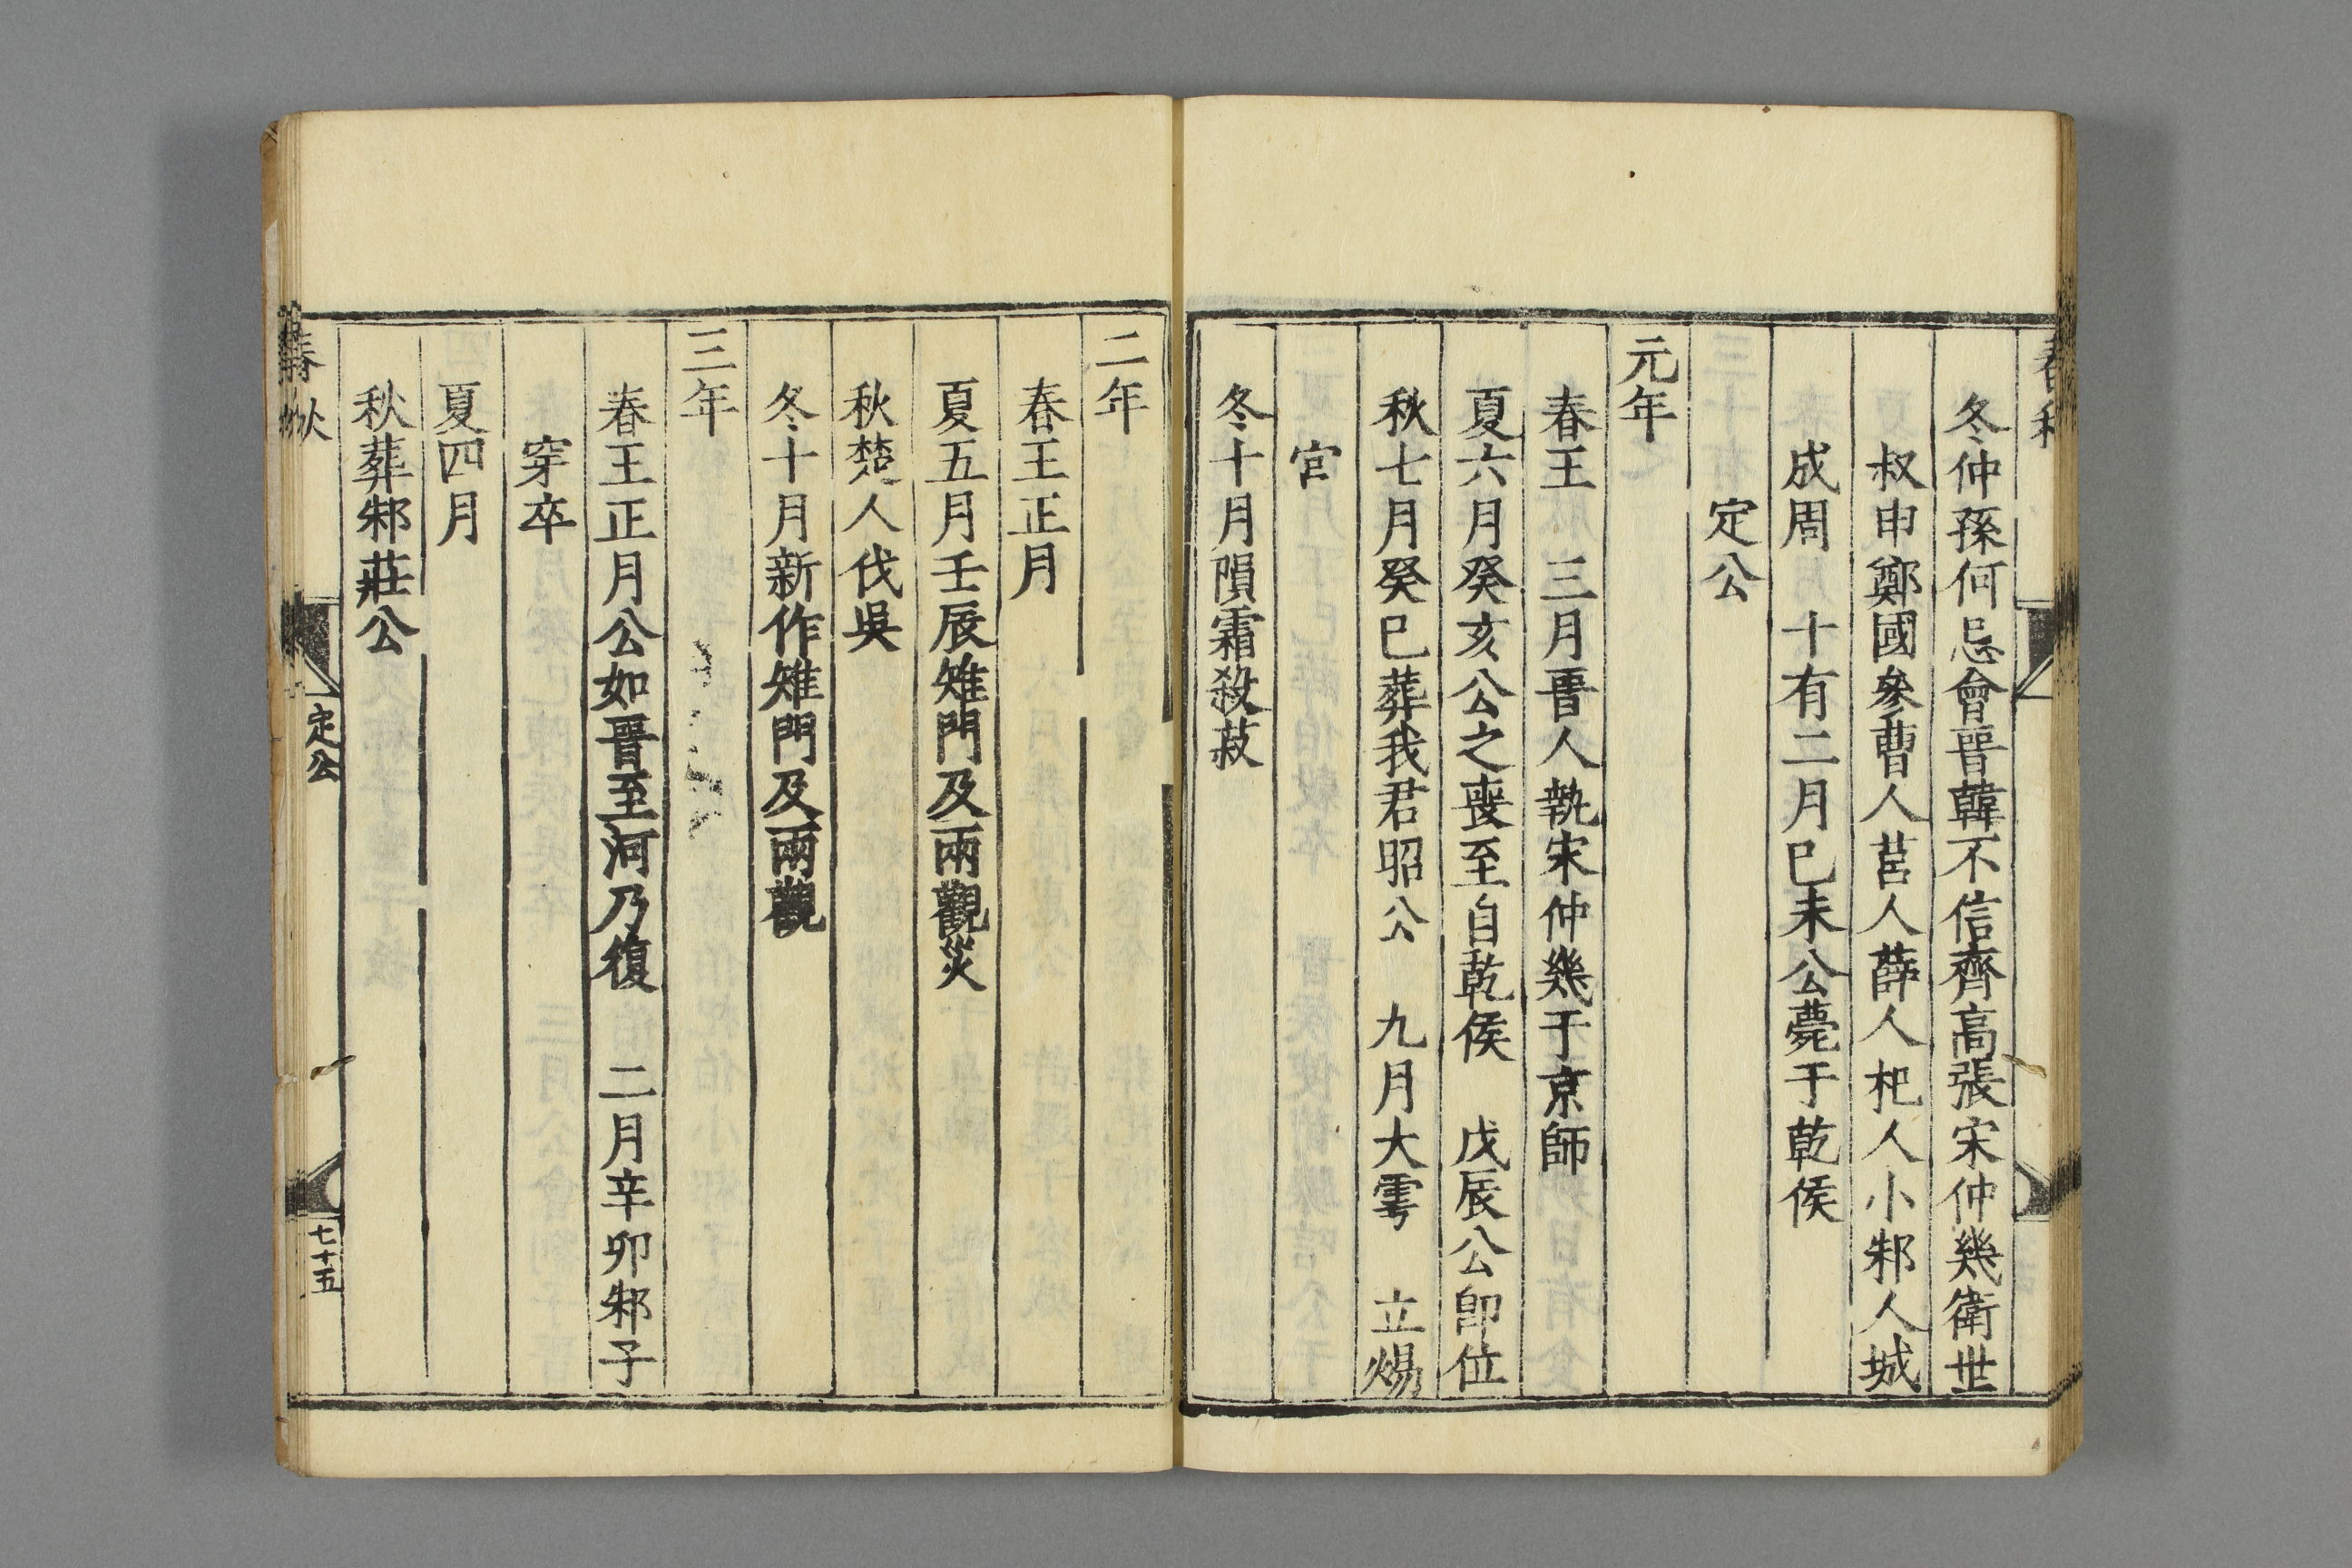 春秋
冬仲孫何忌會晉韓不信齊高張宋仲幾衛世
叔申鄭國參曹人莒人薛人杞人小邾人城
成周　十有二月已未公薨于乾侯
定公
元年
春王　三月晉人執宋仲幾于京師
夏六月癸亥公之喪至自乾侯　戊辰公卽位
秋七月癸巳葬我君昭公　九月大雩　立煬
宮
冬十月隕霜殺菽
二年
春王正月
夏五月壬辰雉門及兩觀災
秋楚人伐吳
冬十月新作雉門及兩觀
三年
春王正月公如晉至河乃復　二月辛卯邾子
穿卒
夏四月
秋葬邾莊公
春秋
定公
七十五